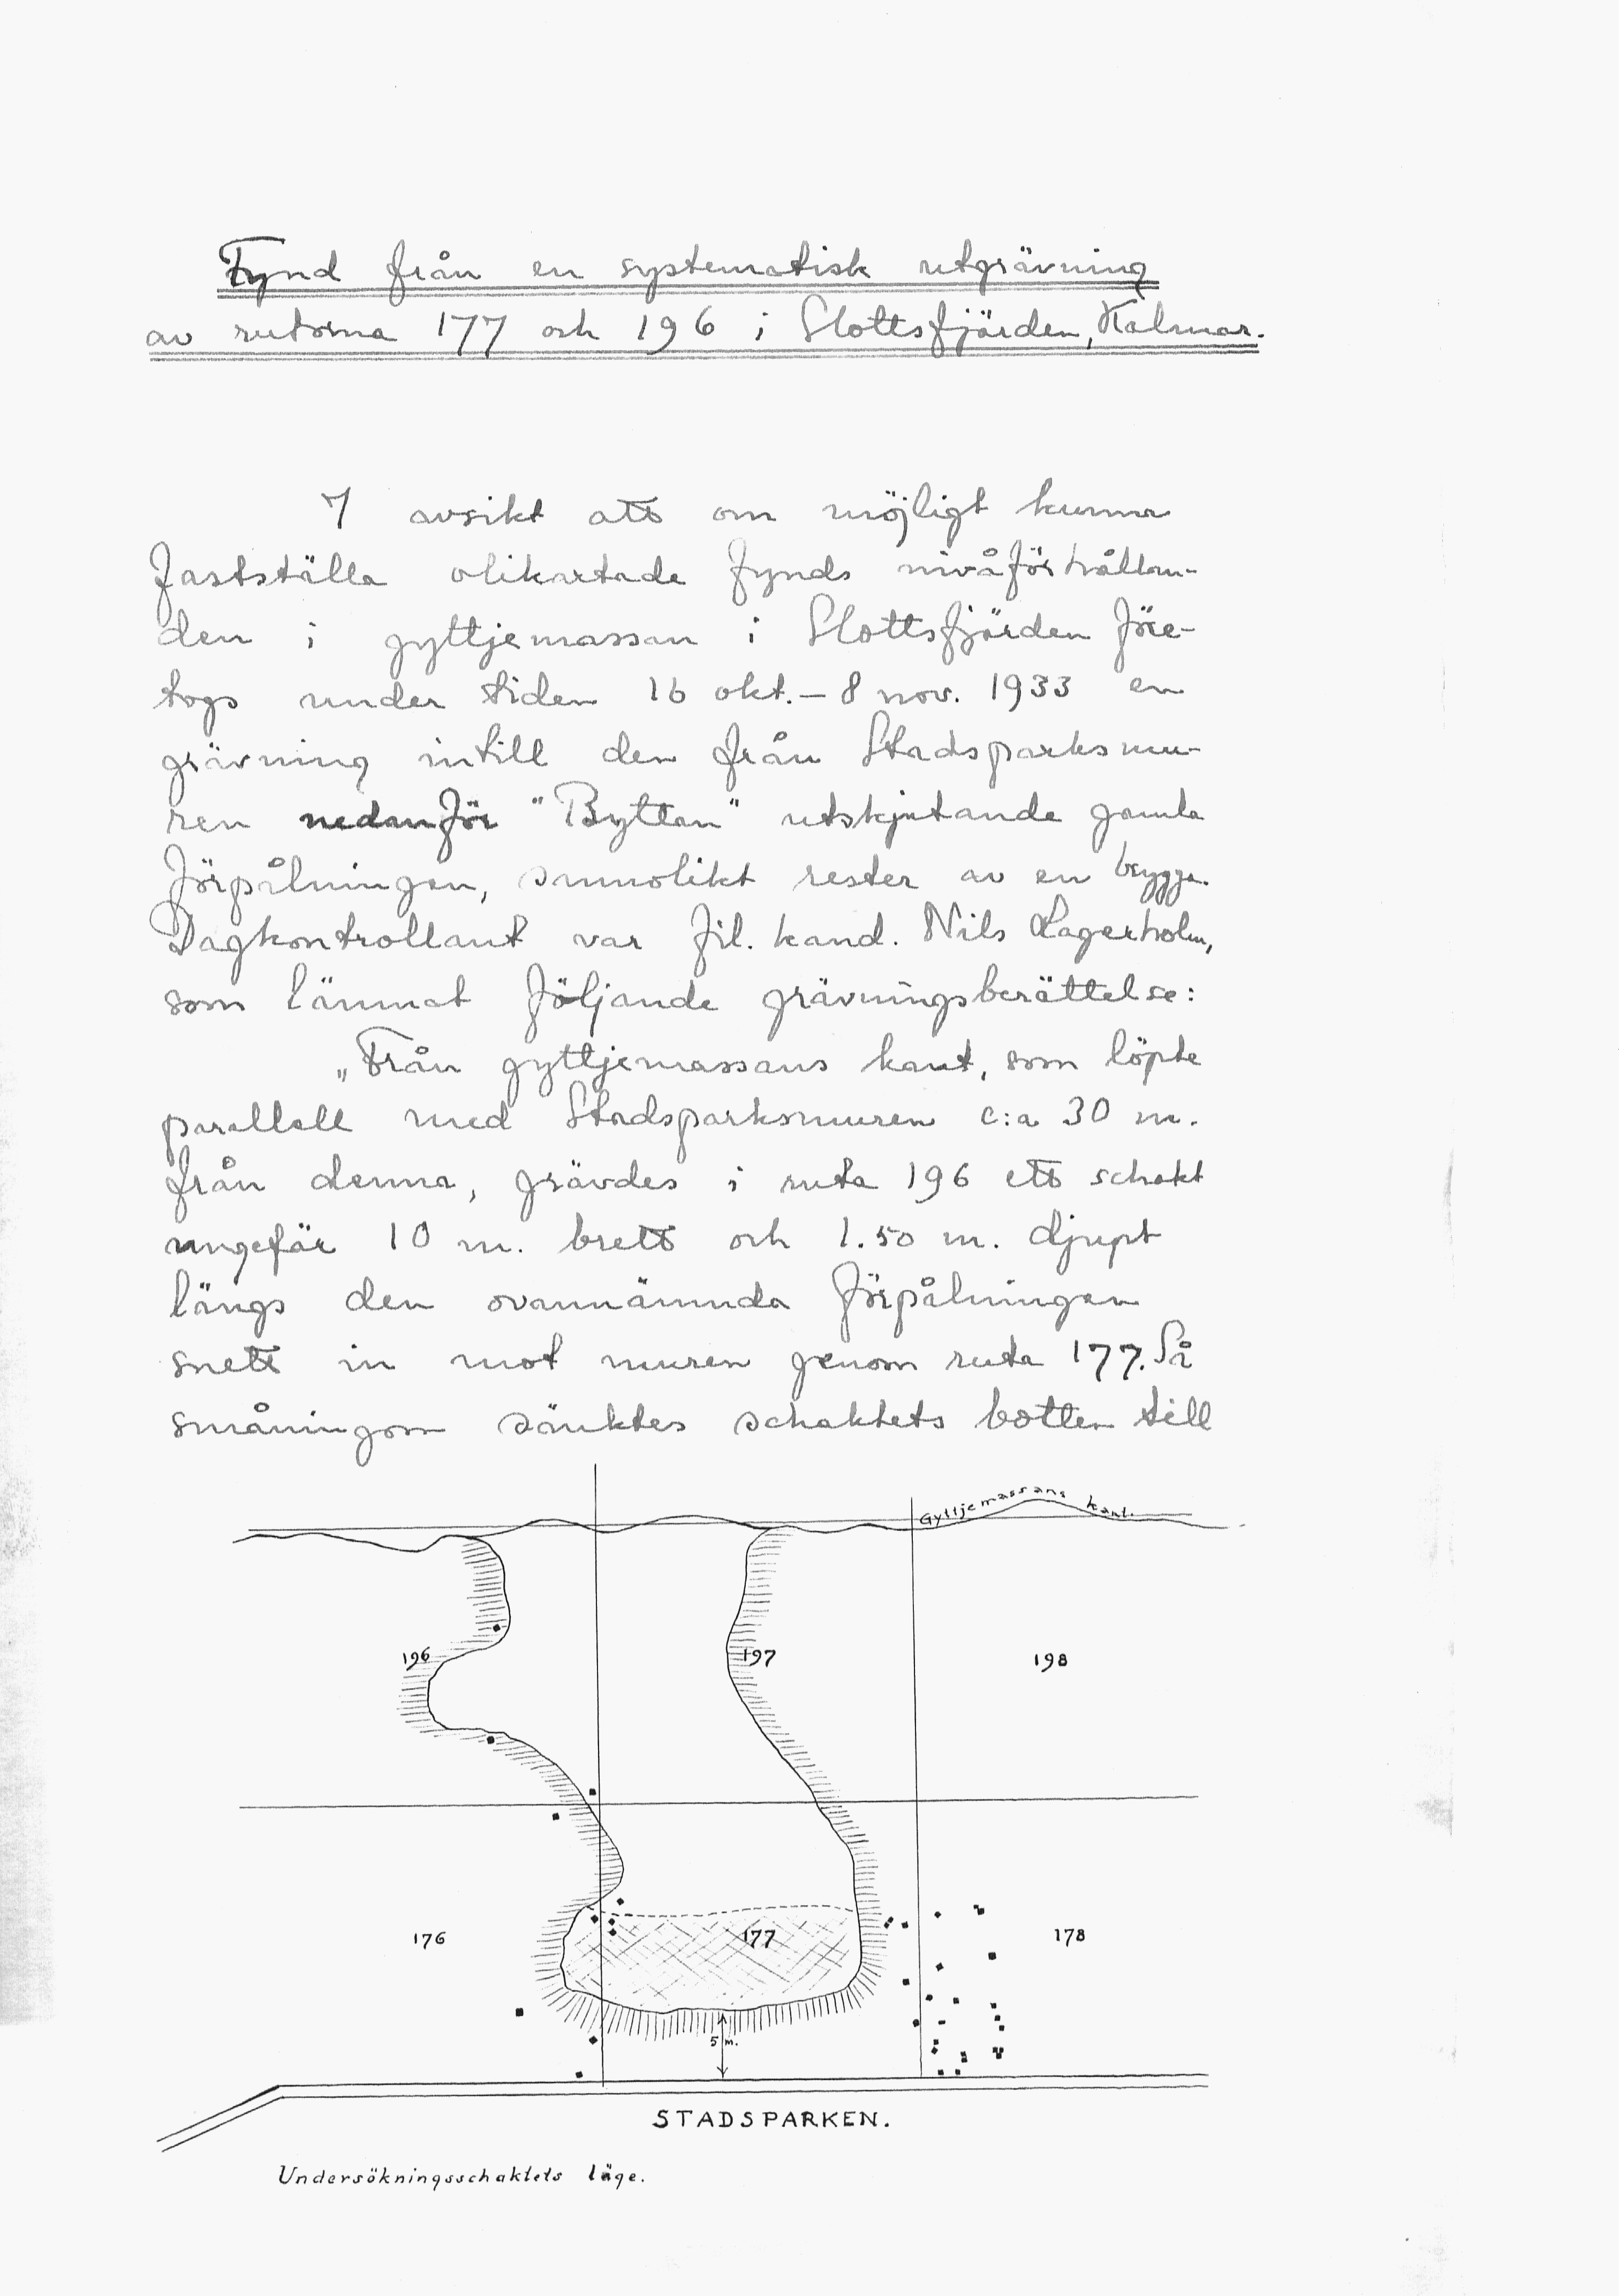 Fynd från en systematisk utgrävning
av rutorna 177 och 196 i Slottsfjärden, Kalmar.
I avsikt att om möjligt kunna
fastställa olikartade fynds nivåförhållan-
den i gyttjemassan i Slottsfjärden före-
togs under tiden 16 okt. – 8 nov. 1933 en
grävning intill den från Stadsparksmu-
ren nedanför "Byttan" utskjutande gamla
förpålningen, sannolikt rester av en brygga.
Dagkontrollant var fil. kand. Nils Lagerholm,
som lämnat följande grävningsberättelse:
„Från gyttjemassans kant, som löpte
parallell med Stadsparksmuren c:a 30 m.
från denna, grävdes i ruta 196 ett schakt
ungefär 10 m. brett och 1.50 m. djupt
längs den ovannämnda förpålningen
snett in mot muren genom ruta 177. Så
småningom sänktes schaktets botten till
Gyttjemassans kant.
196
197
198
176
177
178
5 m.
STADSPARKEN.
Undersökningsschaktets läge.